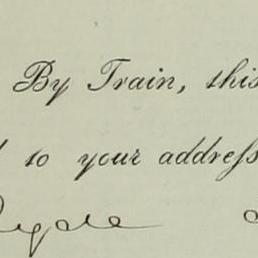 By Train, this
to your address